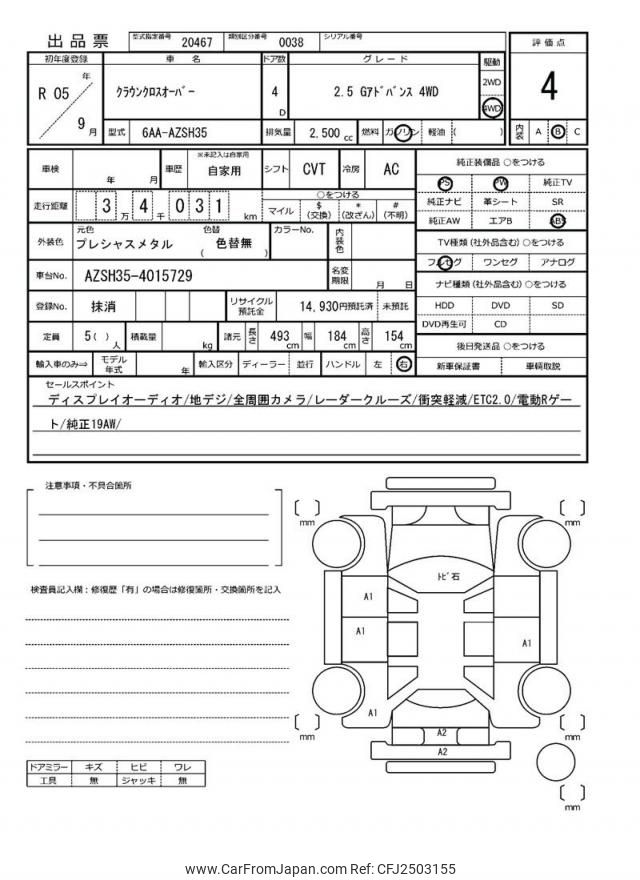 出品票 型式指定番号 20467 類別区分番号 0038 シリアル番号
初年度登録 車 名 ドア数 グレード 駆動 評価点
R 05 年 9 月 クラウンクロスオーバー 4 D 2.5 Gアドバンス 4WD 2WD 4WD 4
型式 6AA-AZSH35 排気量 2,500 cc 燃料 ガソリン 軽油 ( ) 内装 A B C
車検 年 月 車歴 ※未記入は自家用 自家用 シフト CVT 冷房 AC 純正装備品 ○をつける
PS PW 純正TV
走行距離 3 万 4 千 0 3 1 km ○をつける マイル $ (交換) * (改ざん) # (不明) 純正ナビ 革シート SR
純正AW エアB ABS
外装色 元色 プレシャスメタル 色替 ( 色替無 ) カラーNo. 内装色 TV種類 (社外品含む) ○をつける
フルセグ ワンセグ アナログ
車台No. AZSH35-4015729 名変期限 月 日 ナビ種類 (社外品含む) ○をつける
登録No. 抹消 リサイクル預託金 14,930円預託済 未預託 HDD DVD SD
DVD再生可 CD
定員 5( ) 人 積載量 kg 諸元 長さ 493 cm 幅 184 cm 高さ 154 cm 後日発送品 ○をつける
輸入車のみ⇒ モデル年式 年 輸入区分 ディーラー 並行 ハンドル 左 右 新車保証書 車輌取説
セールスポイント
ディスプレイオーディオ/地デジ/全周囲カメラ/レーダークルーズ/衝突軽減/ETC2.0/電動Rゲー
ト/純正19AW/
注意事項・不具合箇所
検査員記入欄：修復歴「有」の場合は修復箇所・交換箇所を記入
mm
mm
トビ石
A1
A1
A1
A1
A2
A2
mm
mm
mm
ドアミラー キズ ヒビ ワレ
工具 無 ジャッキ 無
www.CarFromJapan.com Ref: CFJ2503155